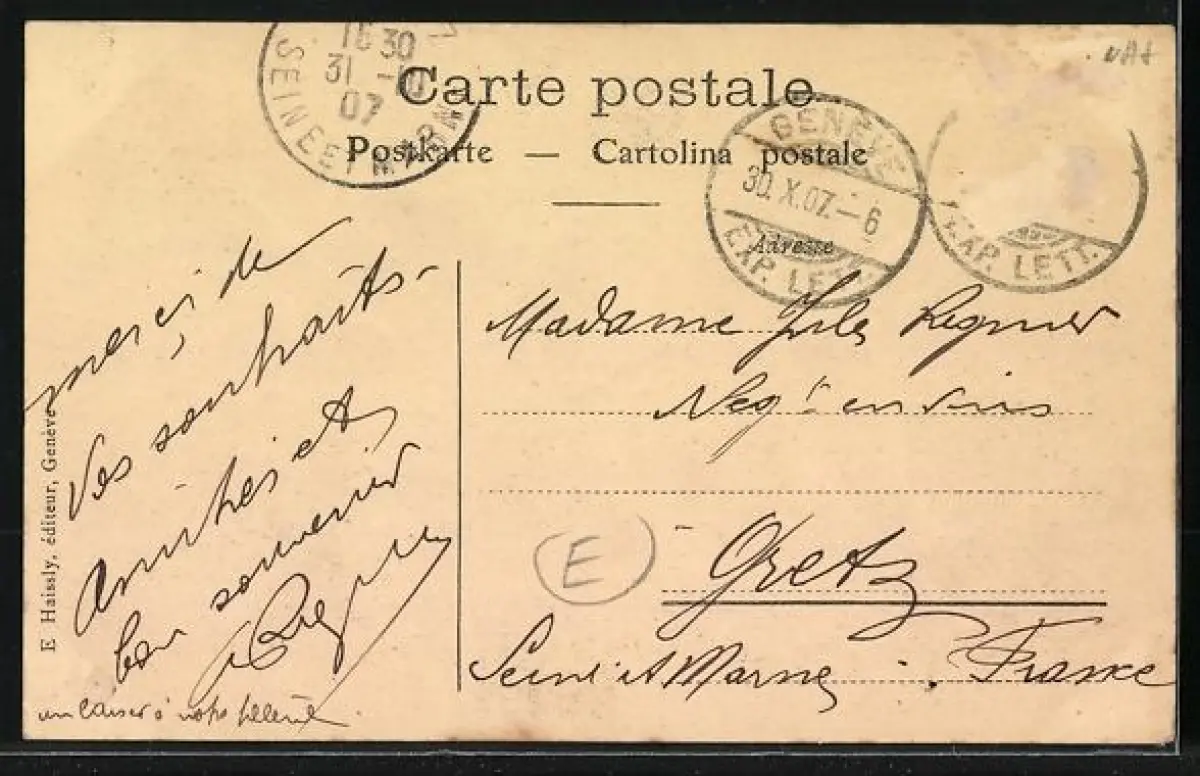 Carte postale
Postkarte — Cartolina postale
Adresse
16 30
31 - 10
07
SEINE ET MARNE
GENÈVE
30. X. 07. – 6
EXP. LETT.
EXP. LETT.
merci, de
Vos souhaits –
Amitiés et
bon souvenir
un baiser à
Madame Jules Regnier
Négt en vins
Gretz
Seine et Marne . France
E
E Haissly, éditeur, Genève